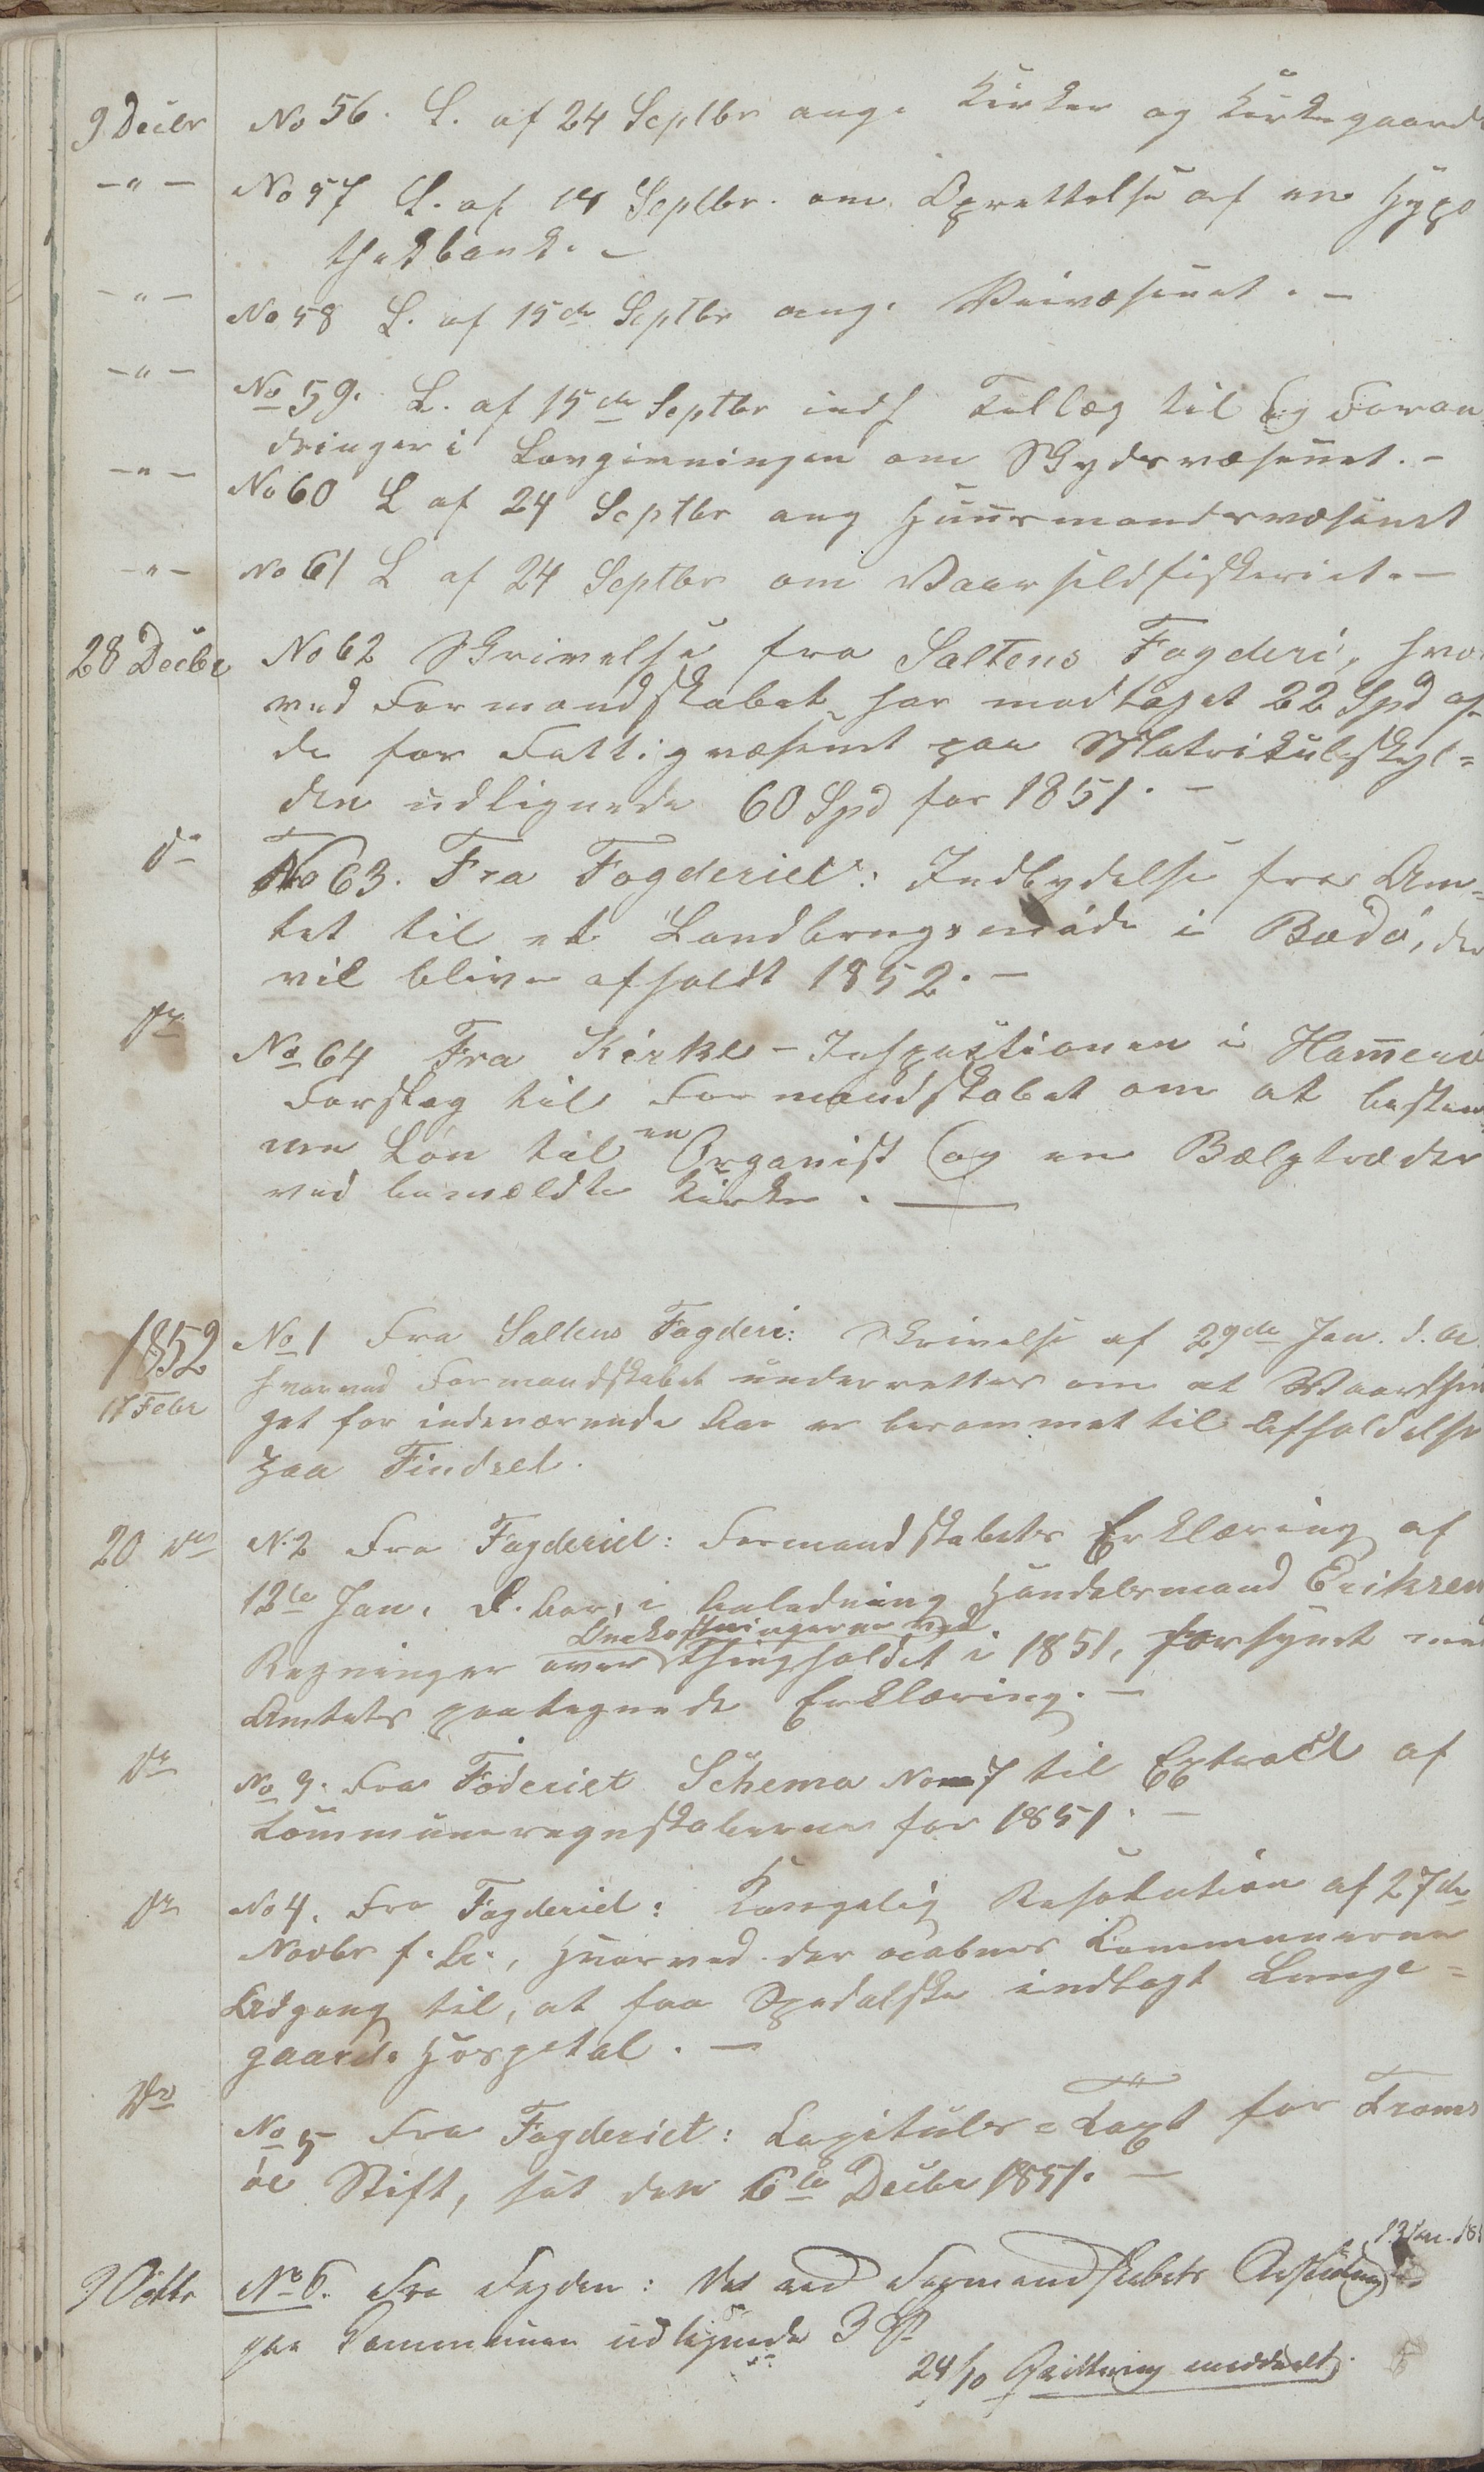 9 Decbr No 56. L. af 24 Septbr ang. Kirker og Kirkegaarde
-"- No 57 L. af 18 Septbr. om Oprettelse af en Hypo
thekbank. -
-"- No 58 L. af 15de Septbr ang. Veivæsenet. -
-"- No 59. L. af 15de Septbr indh Tillæg til og Foran
dringer i Lovgivningen om Skydsvæsenet. -
-"- No 60 L af 24 Septbr ang Huusmandsvæsenet
-"- No 61 L af 24 Septbr om Vaarsildfiskeriet. -
28 Decbr No 62 Skrivelse fra Saltens Fogderi, hvor
ved Formandskabet har modtaget 22 Spd af
de for Fattigvæsenet paa Matrikulskyl=
den udlignede 60 Spd for 1851. -
do No 63. Fra Fogderiet: Indbydelse fra Am=
tet til et Landbrugsmøde i Bodø, der
vil blive afholdt 1852. -
do No 64 Fra Kirke-Inspectionen i Hamerø
Forslag til Formandskabet om at bestem
me Løn til en Organist og en Bælgtræder
ved bemeldte Kirke. -
1852 No 1 Fra Saltens Fogderi: Skrivelse af 29de Jan. d. A.
17 Febr hvorved Formandskabet underrettes om at Vaarthin
get for indeværende Aar er berammet til Afholdelse
paa Findset.
20 do N. 2 Fra Fogderiet: Formandskabets Erklæring af
13de Jan. d. Aar, i Anledning Handelsmand Eriksen
Regninger over Omkostningerne ved Thingholdet i 1851, forsynet med
Amtets paategnede Erklæring. -
do No 3. Fra Foderiet Schema No 7 til Extract af
Kommuneregnskaberne for 1851. -
do No 4. Fra Fogderiet: Kongelig Resolution af 27de
Novbr f. A., hvorved der aabnes Kommunerne
Adgang til, at faa Spedalske indlagt Lunge=
gaards Hospital. -
do No 5 Fra Fogderiet: Kapituls=Taxt for Troms
øe Stift, sat den 6te Decbr 1851. -
9 Octbr No 6. Fra Fogden: Det ved Formandskabets 13 Jan. 18
paa Kommunen udlignede 3 Spd
24/10 Qvittering meddeelt.